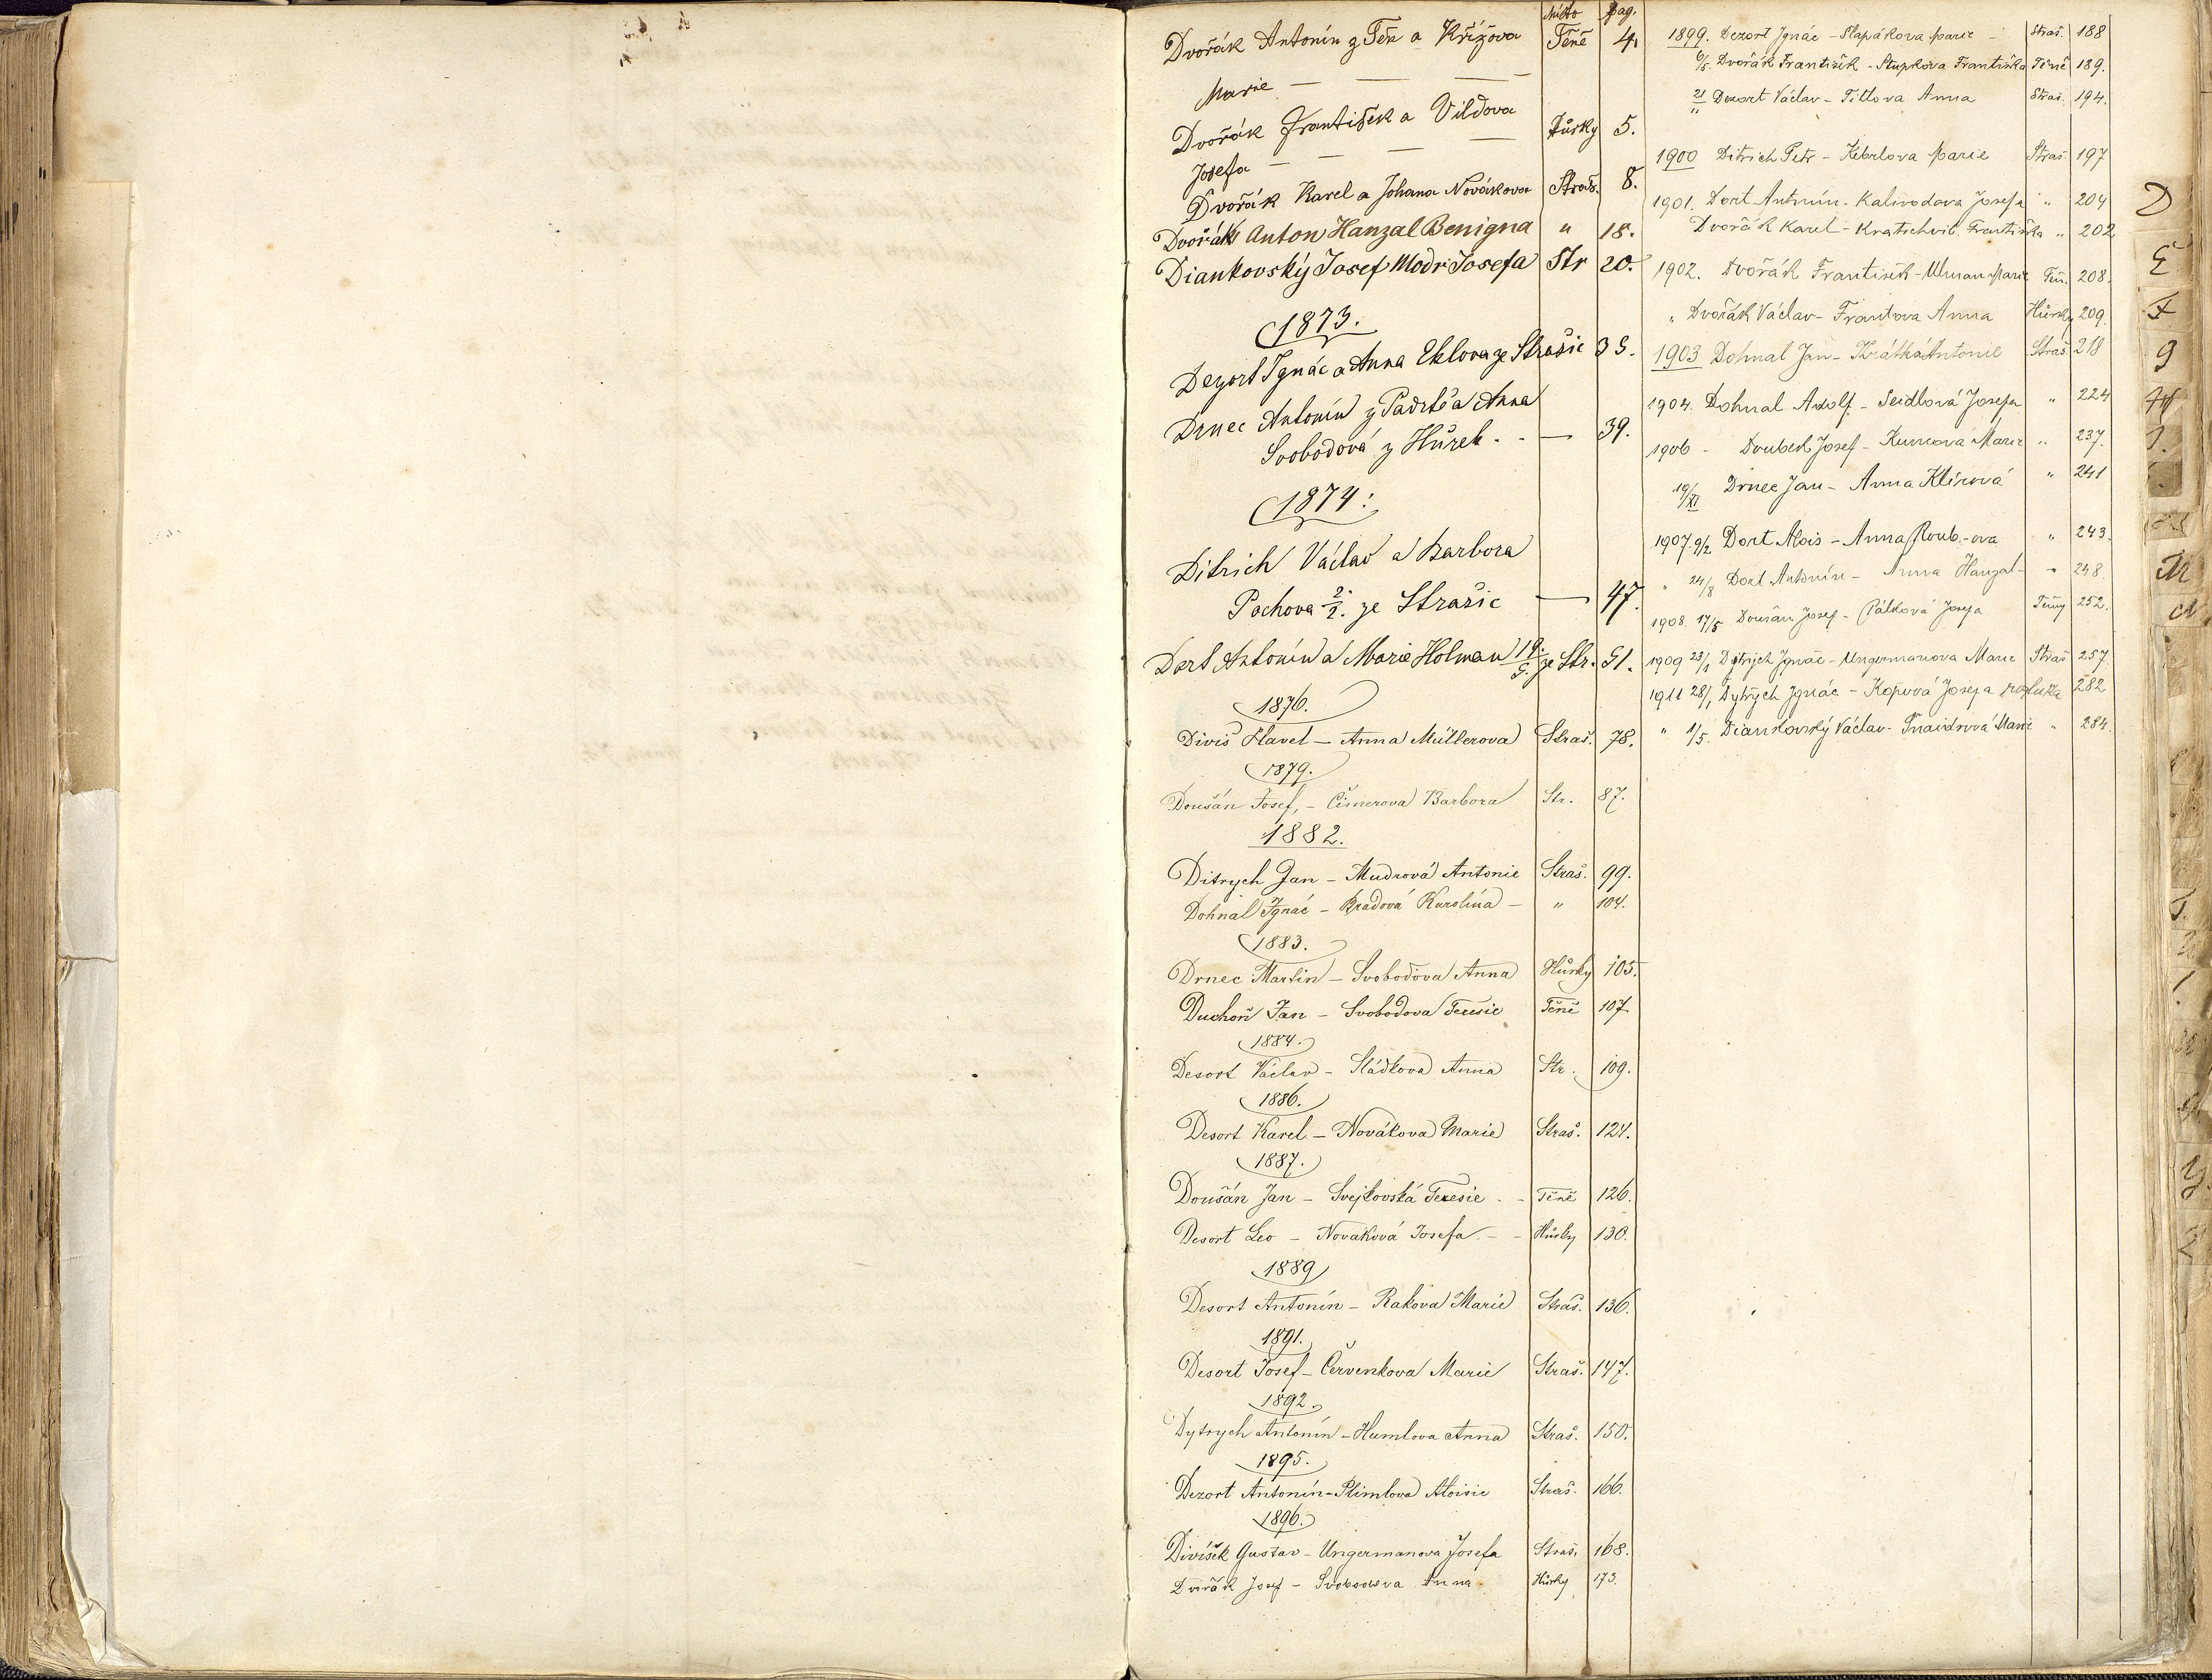 Místo pag.
Dvořák Antonín z Těn a Křížova Těně 4.
Marie — — —
Dvořák František a Vildova Hůrky 5.
Josefa — — — —
Dvořák Karel a Johana Novákova Straš. 8.
Dvořák Anton Hanzal Benigna " 18.
Diankovský Josef Modr Josefa Str 20.
1873.
Dezort Ignác a Anna Eklova ze Strašic 35.
Drnec Antonín z Padrtě a Anna
Svobodová z Hůrek - - — 39.
1874.
Ditrich Václav a Barbora
Pochova 2./2. ze Strašic — 47.
Dort Antonín a Marie Holman 19./5. ze Str. 51.
1876.
Diviš Havel — Anna Müllerova Straš. 78.
1879.
Doušán Josef, - Čimerova Barbora Str. 87.
1882.
Ditrych Jan - Mudrová Antonie Straš. 99.
Dohnal Ignác - Bradová Karolína - " 104.
1883.
Drnec Martin - Svobodova Anna Hůrky 105.
Duchoň Jan - Svobodova Teresie Těně 107
1884.
Desort Václav - Sládkova Anna Str. 109.
1886.
Desort Karel - Novákova Marie Straš. 124.
1887.
Doušán Jan - Svejkovská Teresie - - Těně 126.
Desort Leo - Nováková Josefa - - Hůrky 130.
1889
Desort Antonín - Rakova Marie Straš. 136.
1891.
Desort Josef - Červenkova Marie Straš. 147.
1892.
Dytrych Antonín - Humlova Anna Straš. 150.
1895.
Dezort Antonín - Plimlova Aloisie Straš. 166.
1896.
Divíšek Gustav - Ungermanova Josefa Straš. 168.
Dvořák Josef - Svobodova Anna Hůrky 173.
1899. Dezort Ignác - Slapákova Marie - Straš. 188
6/5. Dvořák František - Stupkova Františka Těně 189.
21/11 Dezort Václav - Titlova Anna Straš. 194.
1900 Ditrich Petr - Kebrlova Marie Straš. 197
1901. Dort Antonín - Kalivodova Josefa " 204
Dvořák Karel - Kratochvíl. Františka " 202
1902. Dvořák František - Ulman Marie Těň. 208.
" Dvořák Václav - Frantova Anna Hůrky 209.
1903 Dohnal Jan - Krátká Antonie Straš. 218
1904. Dohnal Adolf - Seidlová Josefa " 224
1906 - Doubek Josef - Kuncová Marie " 237.
19/XI Drnec Jan - Anna Klírová " 241
1907. 9/2 Dort Alois - Anna Roub.-ova " 243.
" 24/8 Dort Antonín - Anna Hanzal - " 248
1908. 17/5 Doušán Josef - Pálková Josefa Těny 252.
1909 23/1 Dytrych Ignác - Ungermanova Marie Straš 257.
1911 28/1 Dytrych Ignác - Kopová Josefa rozluka 282
" 1/5. Diankovský Václav - Šnaidrová Marie " 284.
D
E
F
G
H
J.
M
N
T.
U
Y.
Z